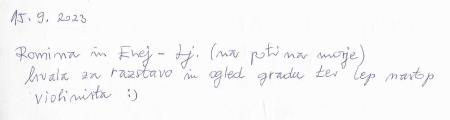 15. 9. 2023
Romina in Enej - Lj. (na poti na morje)
hvala za razstavo in ogled gradu ter lep nastop
violinista :)